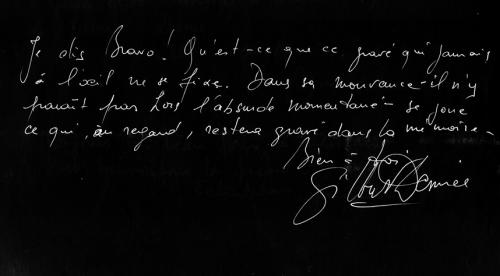 Je dis Bravo! Qu'est-ce que ce gravé qui jamais
à l'œil ne se fixe. Dans sa mouvance - il n'y
paraît pas Lors l'absurde momentané - se joue
ce qui, au regard, restera gravé dans la mémoire -
Bien à toi